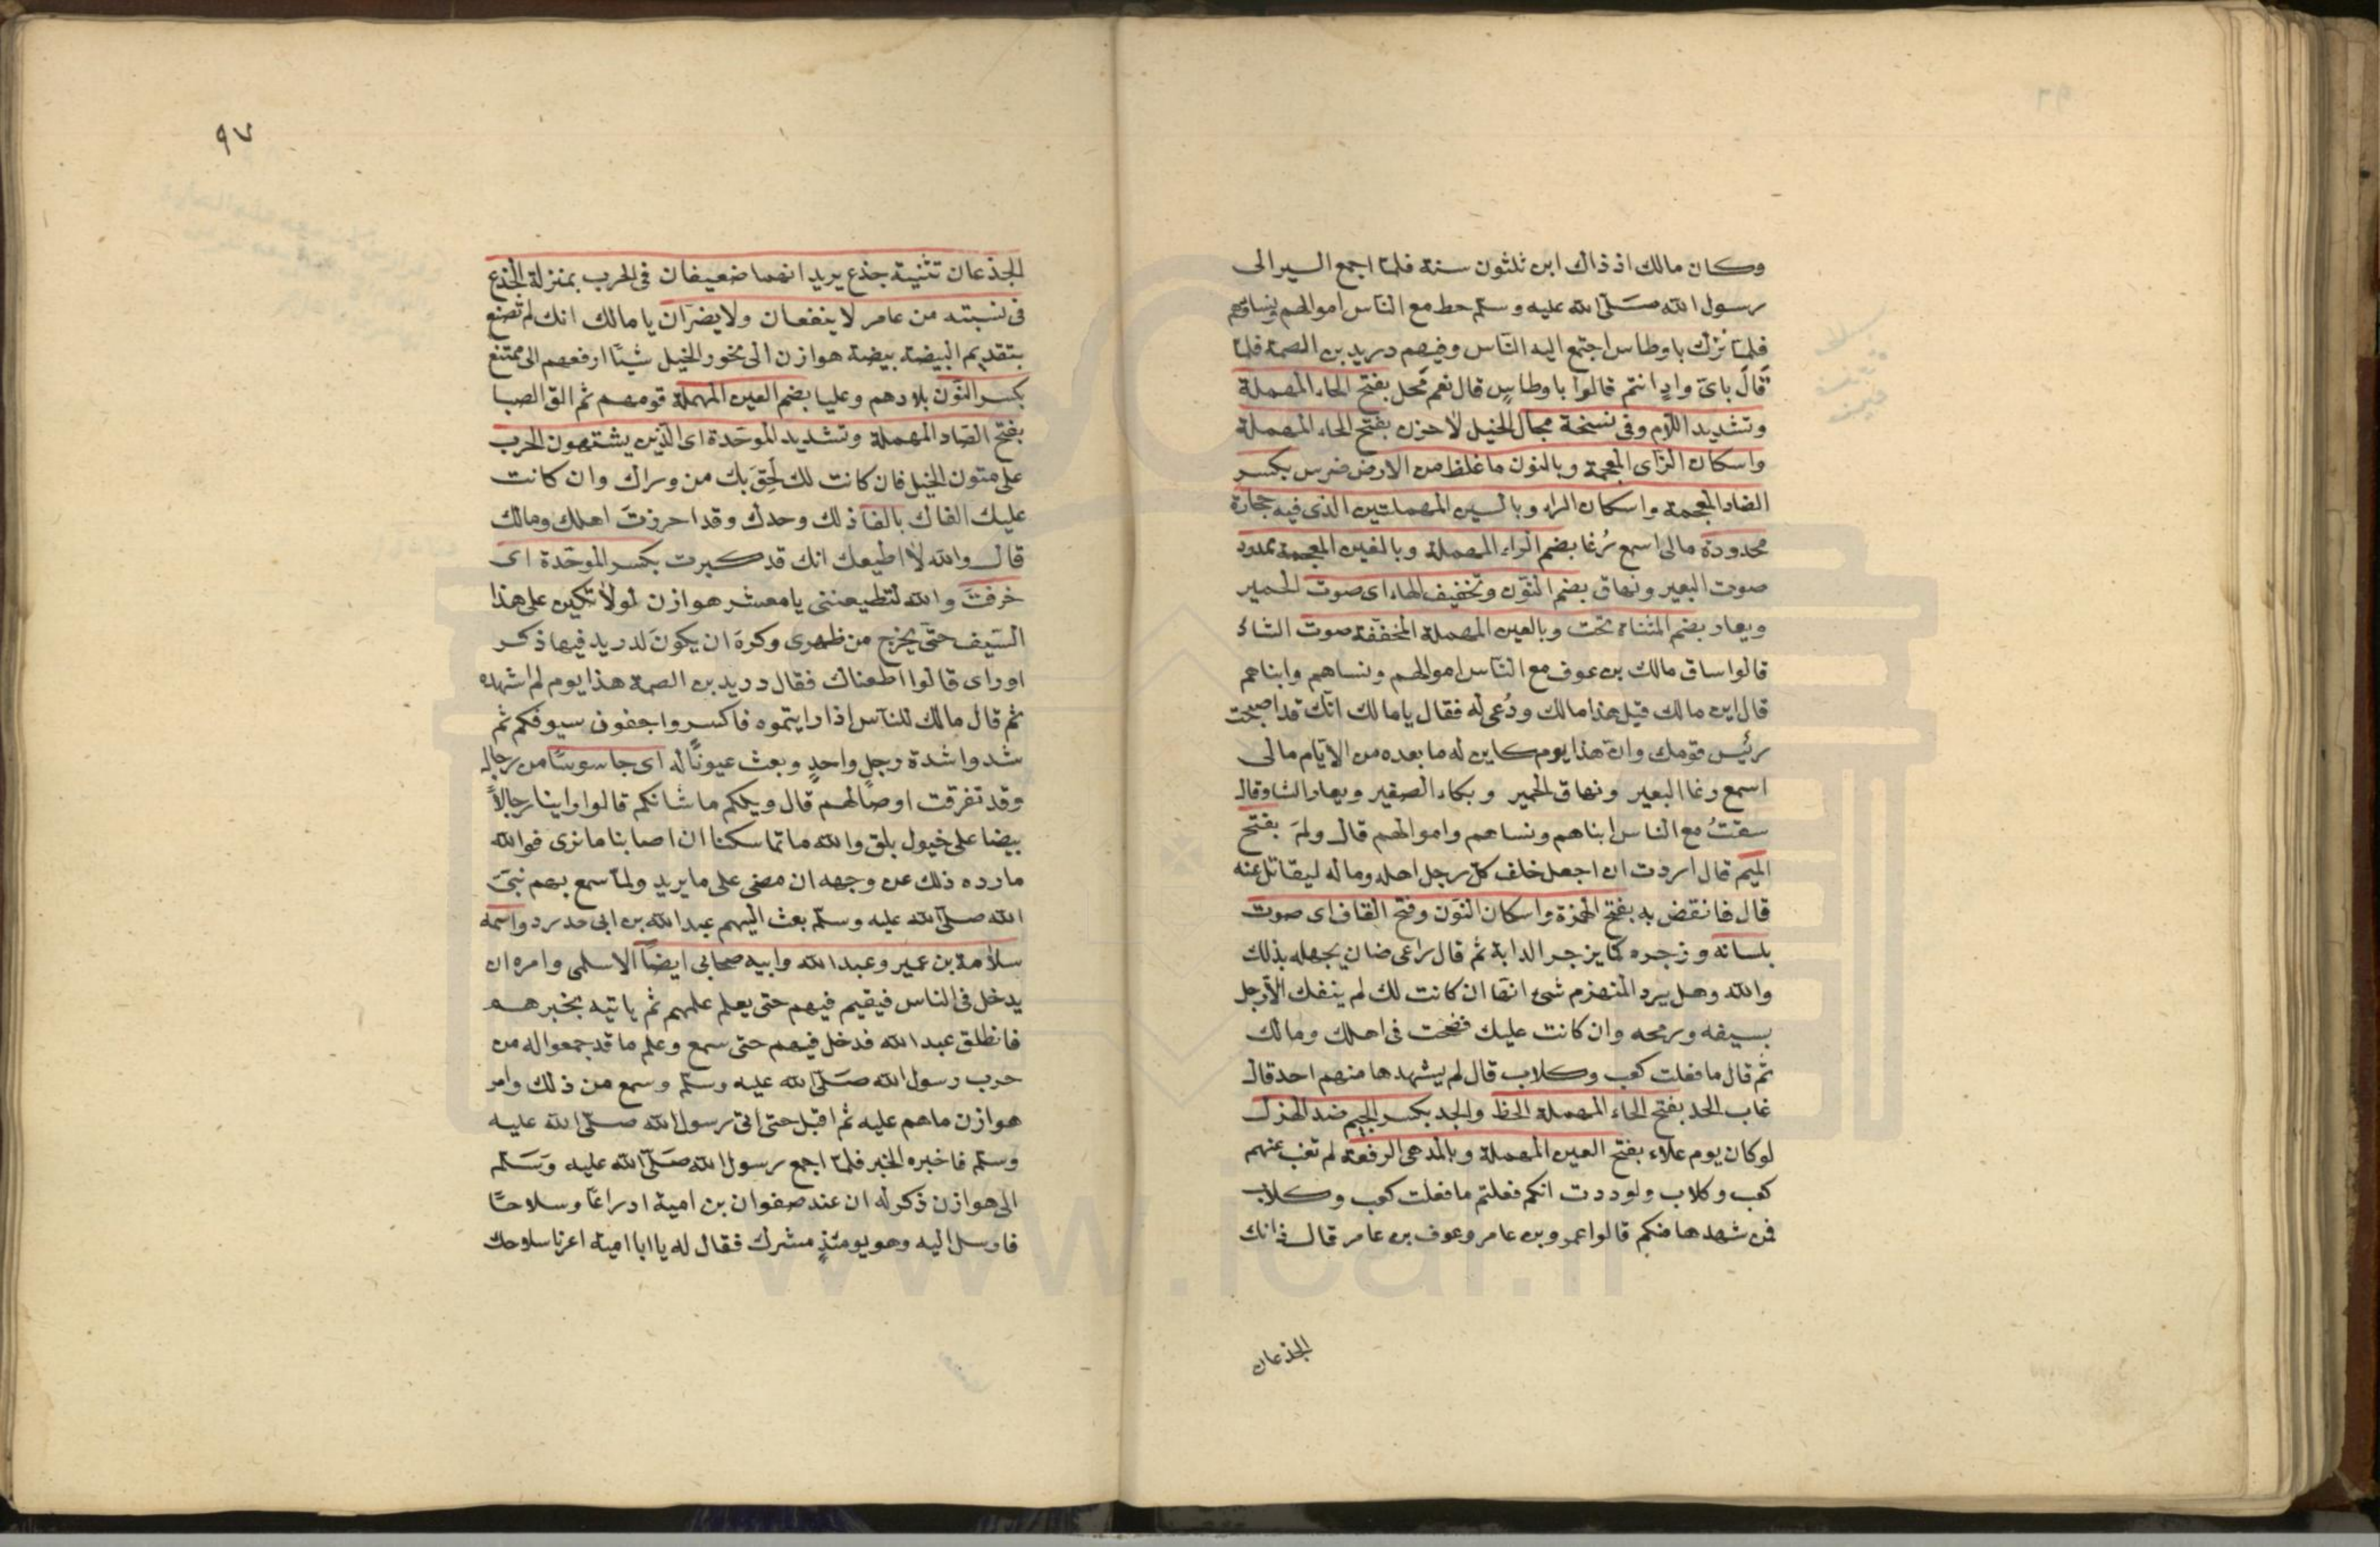 وكان مالك اذ ذاك ابن ثلثون سنة فلما اجمع السير الى
رسول الله صلى الله عليه وسلم حط مع الناس اموالهم ونساءهم
فلما نزل باوطاس اجتمع اليه الناس وفيهم دريد بن الصمة فلما
قال باى واد انتم قالوا باوطاس قال نعم محل بفتح الحاء المهملة
وتشديد اللام وفى نسخة مجال الخيل لا حزن بفتح الحاء المهملة
واسكان الزاى المعجمة وبالنون ما غلظ من الارض ضرس بكسر
الضاد المعجمة واسكان الراء وبالسين المهملتين الذى فيه حجارة
محدودة مالى اسمع رُغا بضم الراء المهملة وبالغين المعجمة ممدود
صوت البعير ونهاق بضم النون وتخفيف الهاء اى صوت الحمير
ويعار بضم المثناة تحت وبالعين المهملة المخففة صوت الشاء
قالوا ساق مالك بن عوف مع الناس اموالهم ونساهم وابناهم
قال اين مالك قيل هذا مالك ودُعى له فقال يا مالك انك قد اصبحت
رئيس قومك وان هذا يوم كاين له ما بعده من الايام مالى
اسمع رغا البعير ونهاق الحمير وبكاء الصغير ويعار الشاء قال
سقتُ مع الناس ابناهم ونساهم واموالهم قال ولمَ بفتح
الميم قال اردت ان اجعل خلف كل رجل اهله وماله ليقاتل عنه
قال فانقض به بفتح الهمزة واسكان النون وفتح القاف اى صوت
بلسانه وزجره كما يزجر الدابة ثم قال راعى ضان يجهله بذلك
والله وهل يرد المنهزم شئ انها ان كانت لك لم ينفك الا رجل
بسيفه ورمحه وان كانت عليك فضحت فى اهلك ومالك
ثم قال ما فعلت كعب وكلاب قال لم يشهدها منهم احد قال
غاب الحد بفتح الحاء المهملة الحظ والجد بكسر الجيم ضد الهزل
لو كان يوم علاء بفتح العين المهملة وبالمد هى الرفعة لم تغب عنهم
كعب وكلاب ولوددت انكم فعلتم ما فعلت كعب وكلاب
فمن شهدها منكم قالوا عمرو بن عامر وعوف بن عامر قال ذانك
الجذعان
٩٧
الجذعان تثنية جذع يريد انهما ضعيفان فى الحرب بمنزلة الجذع
فى نسبته من عامر لا ينفعان ولا يضران يا مالك انك لم تصنع
بتقديم البيضة بيضة هوازن الى نحور الخيل شيئا ارفعهم الى ممتنع
بكسر النون بلادهم وعليا بضم العين المهملة قومهم ثم الق الصبا
بفتح الصاد المهملة وتشديد الموحدة اى الذين يشتهون الحرب
على متون الخيل فان كانت لك لَحِقَ بك من وراك وان كانت
عليك الفاك بالفا ذلك وحدك وقد احرزتَ اهلك ومالك
قال والله لا اطيعك انك قد كبرت بكسر الموحدة اى
خرفتَ والله لتطيعننى يا معشر هوازن او لاتكين على هذا
السيف حتى يخرج من ظهرى وكره ان يكون لدريد فيها ذكر
او راى قالوا اطعناك فقال دريد بن الصمة هذا يوم لم اشهده
ثم قال مالك للناس اذا رايتموه فاكسروا جفون سيوفكم ثم
شدوا شدة رجل واحدٍ وبعث عيونًا له اى جاسوسًا من رجاله
وقد تفرقت اوصالهم قال ويلكم ما شانكم قالوا راينا رجالاً
بيضا على خيول بلق والله ما تماسكنا ان اصابنا ما نرى فوالله
ما رده ذلك عن وجهه ان مضى على ما يريد ولما سمع بهم نبى
الله صلى الله عليه وسلم بعث اليهم عبد الله بن ابى حدرد واسمه
سلامة بن عمير وعبد الله وابيه صحابى ايضًا الاسلمى وامره ان
يدخل فى الناس فيقيم فيهم حتى يعلم علمهم ثم ياتيه بخبرهم
فانطلق عبد الله فدخل فيهم حتى سمع وعلم ما قد جمعوا له من
حرب رسول الله صلى الله عليه وسلم وسمع من ذلك وامر
هوازن ما هم عليه ثم اقبل حتى اتى رسول الله صلى الله عليه
وسلم فاخبره الخبر فلما اجمع رسول الله صلى الله عليه وسلم
الى هوازن ذكر له ان عند صفوان بن امية ادراعًا وسلاحًا
فارسل اليه وهو يومئذٍ مشرك فقال له يا ابا امية اعرنا سلاحك
www.icar.ir